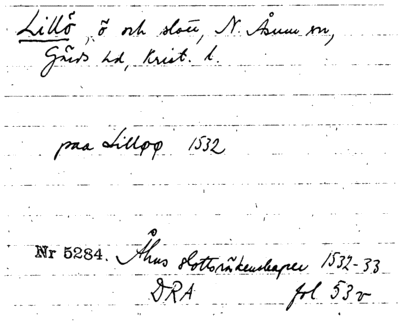 Lillö, ö och slott, N. Åsum sn,
Gärds hd, Krist. l.
paa Lilløø 1532
Nr 5284. Åhus slottsräkenskaper 1532-33
DRA fol 53v